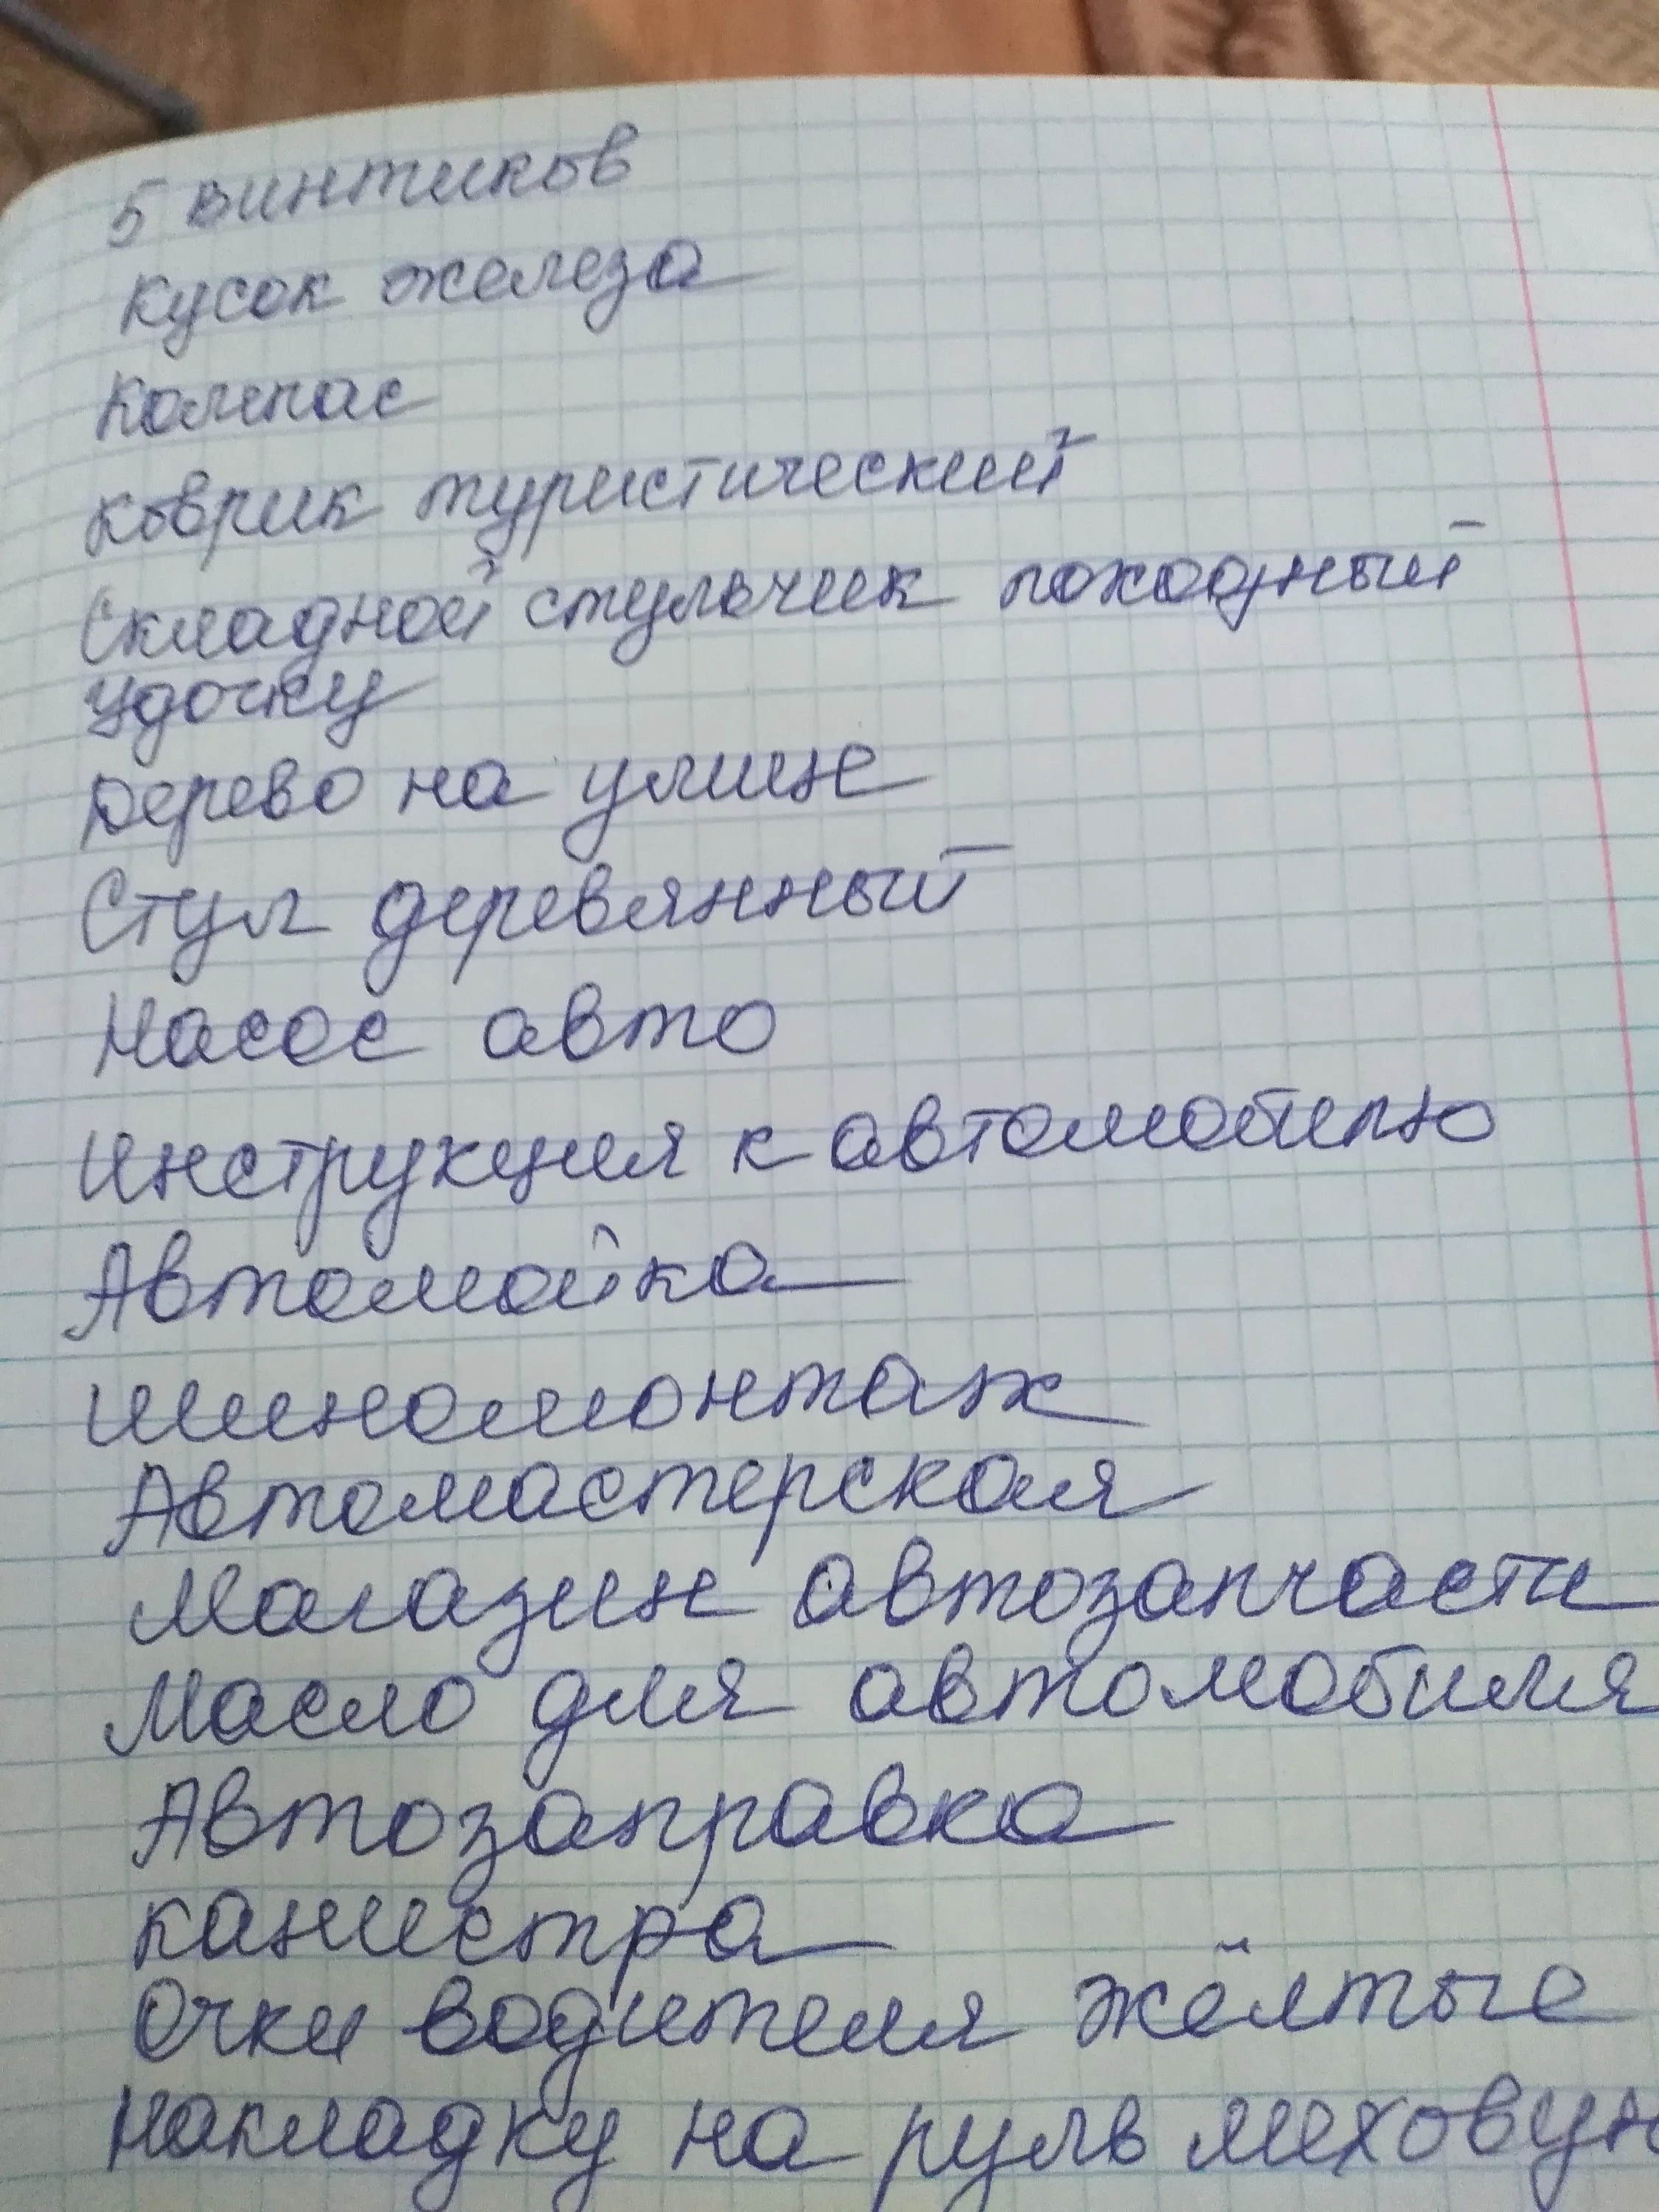 5 винтиков
кусок железа
Компас
коврик туристический
Складной стульчик походный
удочку
Дерево на улице
Стул деревянный
Насос авто
Инструкция к автомобилю
Автомойка
Шиномонтаж
Автомастерская
Магазин автозапчасти
Масло для автомобиля
Автозаправка
канистра
Очки водителя жёлтые
Накладку на руль меховую